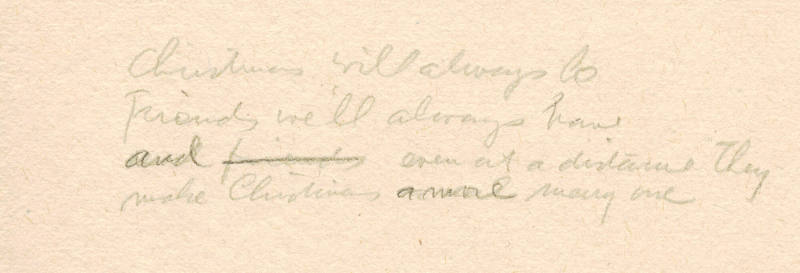 Christmas will always be
Friends we'll always have
and friends even at a distance they
make Christmas a more merry one